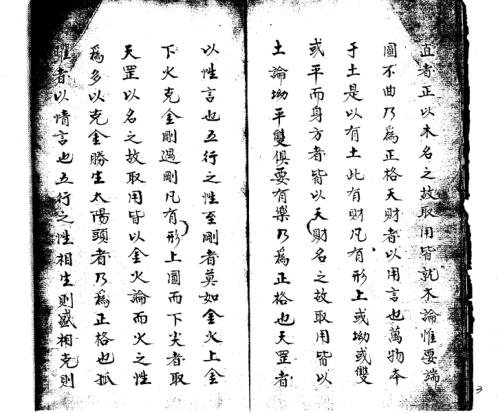 直者正以木名之故取用皆就木論惟要端
圓不曲乃為正格天財者以用言也萬物本
于土是以有土此有財凡有形上或坳或雙
或平而身方者皆以天財名之故取用皆以
土論坳平雙俱要有樂乃為正格也天罡者
以性言也五行之性至剛者莫如金火上金
下火克金剛過剛凡有形上圓而下尖者取
天罡以名之故取用皆以金火論而火之性
為多以克金勝生太陽頭者乃為正格也孤
者以情言也五行之性相生則盛相克則
3